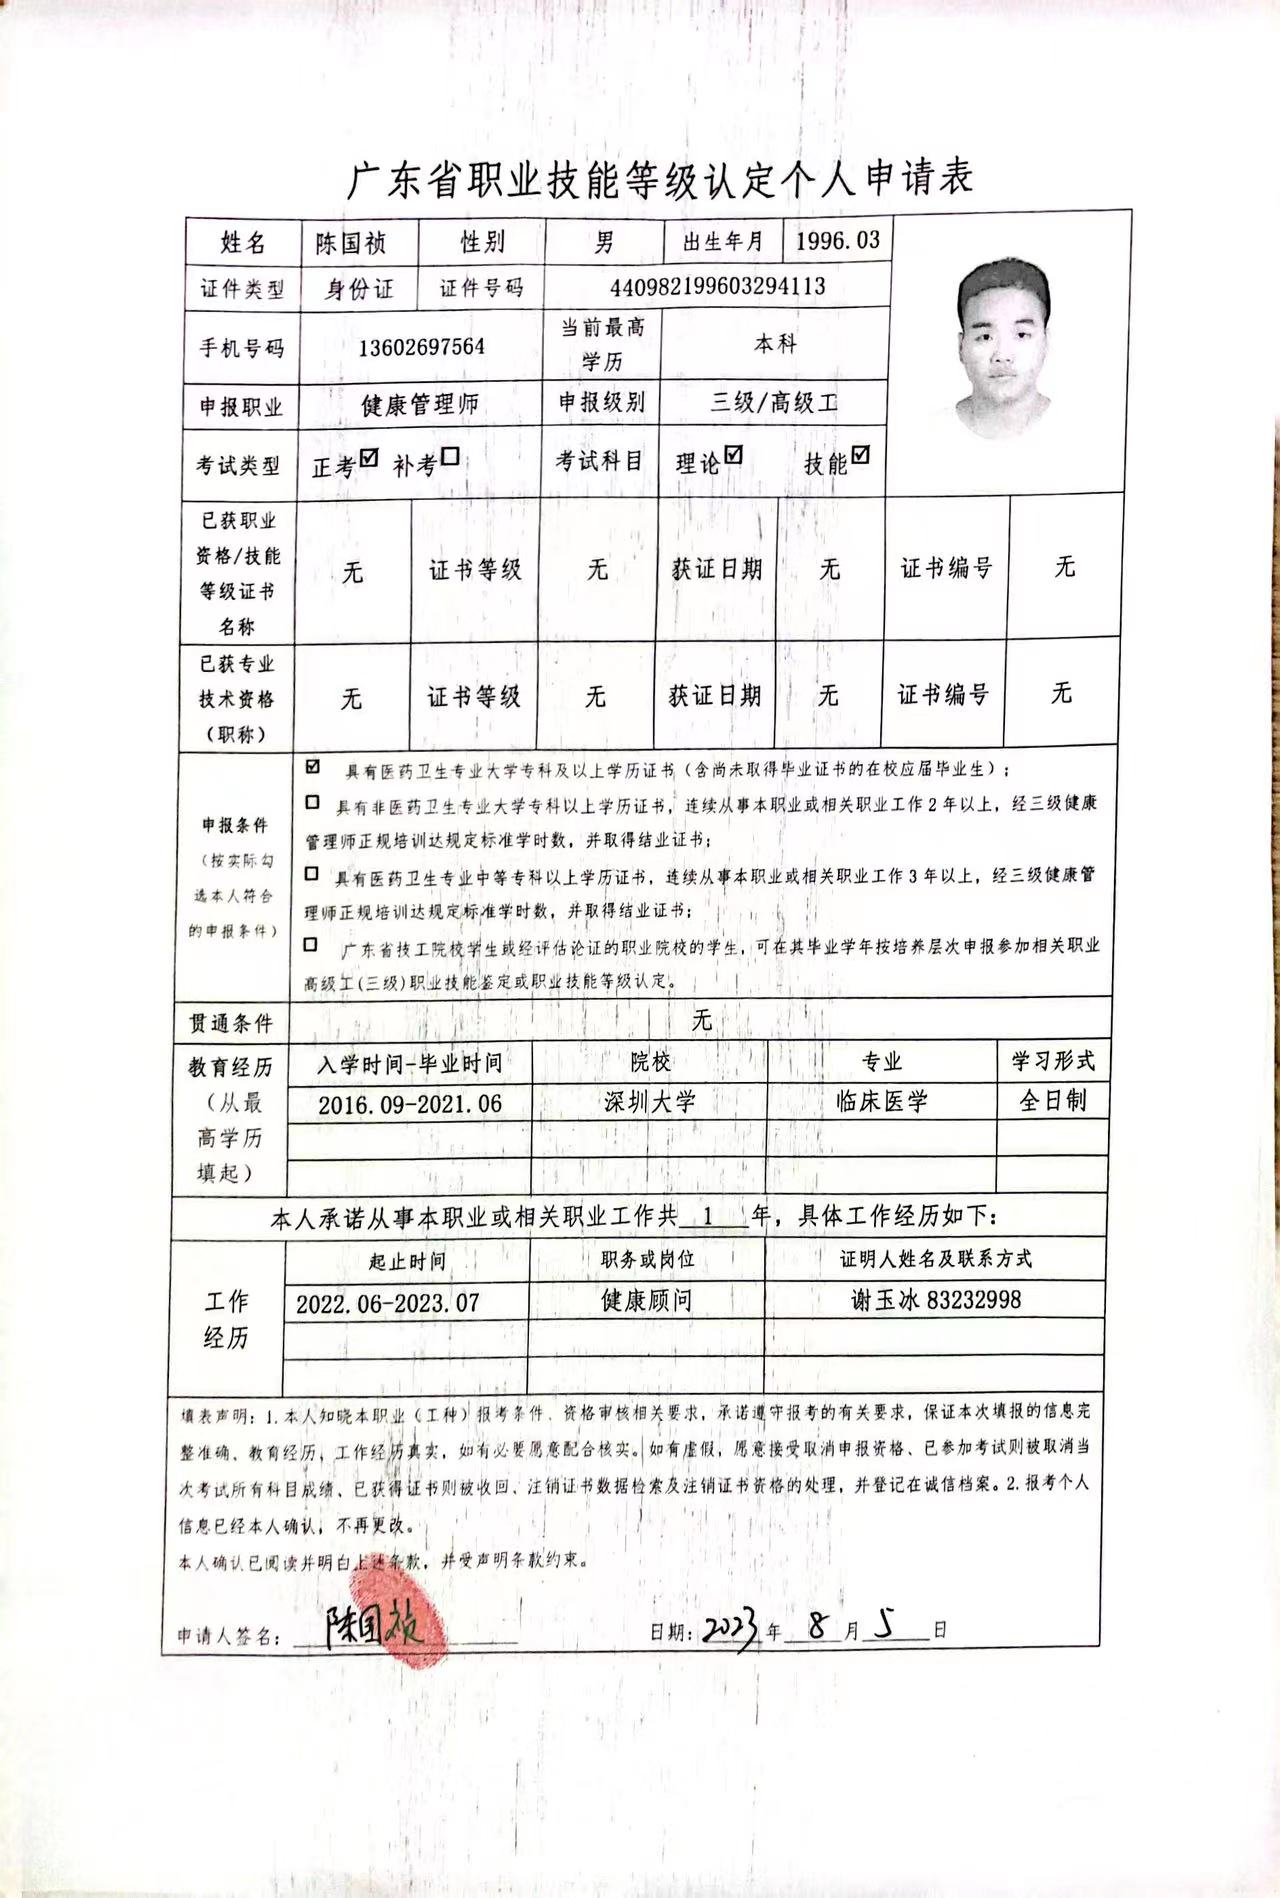 广东省职业技能等级认定个人申请表
姓名 陈国祯 性别 男 出生年月 1996.03
证件类型 身份证 证件号码 440982199603294113
手机号码 13602697564 当前最高学历 本科
申报职业 健康管理师 申报级别 三级/高级工
考试类型 正考☑ 补考☐ 考试科目 理论☑ 技能☑
已获职业资格/技能等级证书名称 无 证书等级 无 获证日期 无 证书编号 无
已获专业技术资格（职称） 无 证书等级 无 获证日期 无 证书编号 无
申报条件（按实际勾选本人符合的申报条件）
☑ 具有医药卫生专业大学专科及以上学历证书（含尚未取得毕业证书的在校应届毕业生）；
☐ 具有非医药卫生专业大学专科以上学历证书，连续从事本职业或相关职业工作2年以上，经三级健康
管理师正规培训达规定标准学时数，并取得结业证书；
☐ 具有医药卫生专业中等专科以上学历证书，连续从事本职业或相关职业工作3年以上，经三级健康管
理师正规培训达规定标准学时数，并取得结业证书；
☐ 广东省技工院校学生或经评估论证的职业院校的学生，可在其毕业学年按培养层次申报参加相关职业
高级工(三级)职业技能鉴定或职业技能等级认定。
贯通条件 无
教育经历（从最高学历填起） 入学时间-毕业时间 院校 专业 学习形式
2016.09-2021.06 深圳大学 临床医学 全日制
本人承诺从事本职业或相关职业工作共 1 年，具体工作经历如下：
工作经历 起止时间 职务或岗位 证明人姓名及联系方式
2022.06-2023.07 健康顾问 谢玉冰 83232998
填表声明：1.本人知晓本职业（工种）报考条件、资格审核相关要求，承诺遵守报考的有关要求，保证本次填报的信息完
整准确、教育经历、工作经历真实，如有必要愿意配合核实。如有虚假，愿意接受取消申报资格、已参加考试则被取消当
次考试所有科目成绩、已获得证书则被收回、注销证书数据检索及注销证书资格的处理，并登记在诚信档案。2.报考个人
信息已经本人确认，不再更改。
本人确认已阅读并明白上述条款，并受声明条款约束。
申请人签名： 陈国祯 日期：2023 年 8 月 5 日